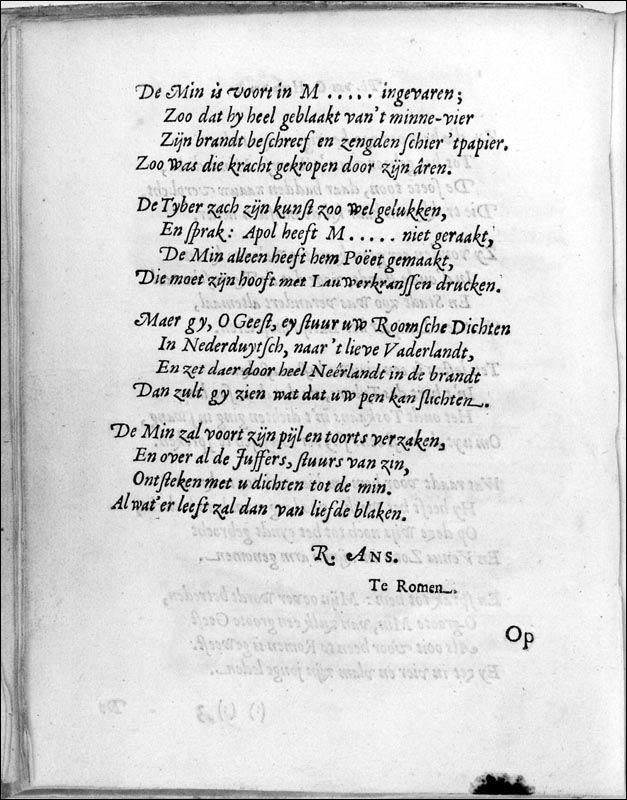 De Min is voort in M ..... ingevaren;
Zoo dat hy heel geblaakt van't minne-vier
Zijn brandt beschreef en zengden schier 'tpapier.
Zoo was die kracht gekropen door zijn âren.
De Tyber zach zijn kunst zoo wel gelukken,
En sprak: Apol heeft M ..... niet geraakt,
De Min alleen heeft hem Poëet gemaakt,
Die moet zijn hooft met Lauwerkranssen drucken.
Maer gy, O Geest, ey stuur uw Roomsche Dichten
In Nederduytsch, naar 't lieve Vaderlandt,
En zet daer door heel Neêrlandt in de brandt
Dan zult gy zien wat dat uw pen kan stichten.
De Min zal voort zijn pijl en toorts verzaken,
En over al de Juffers, stuurs van zin,
Ontsteken met u dichten tot de min.
Al wat'er leeft zal dan van liefde blaken.
R. ANS.
Te Romen.
Op